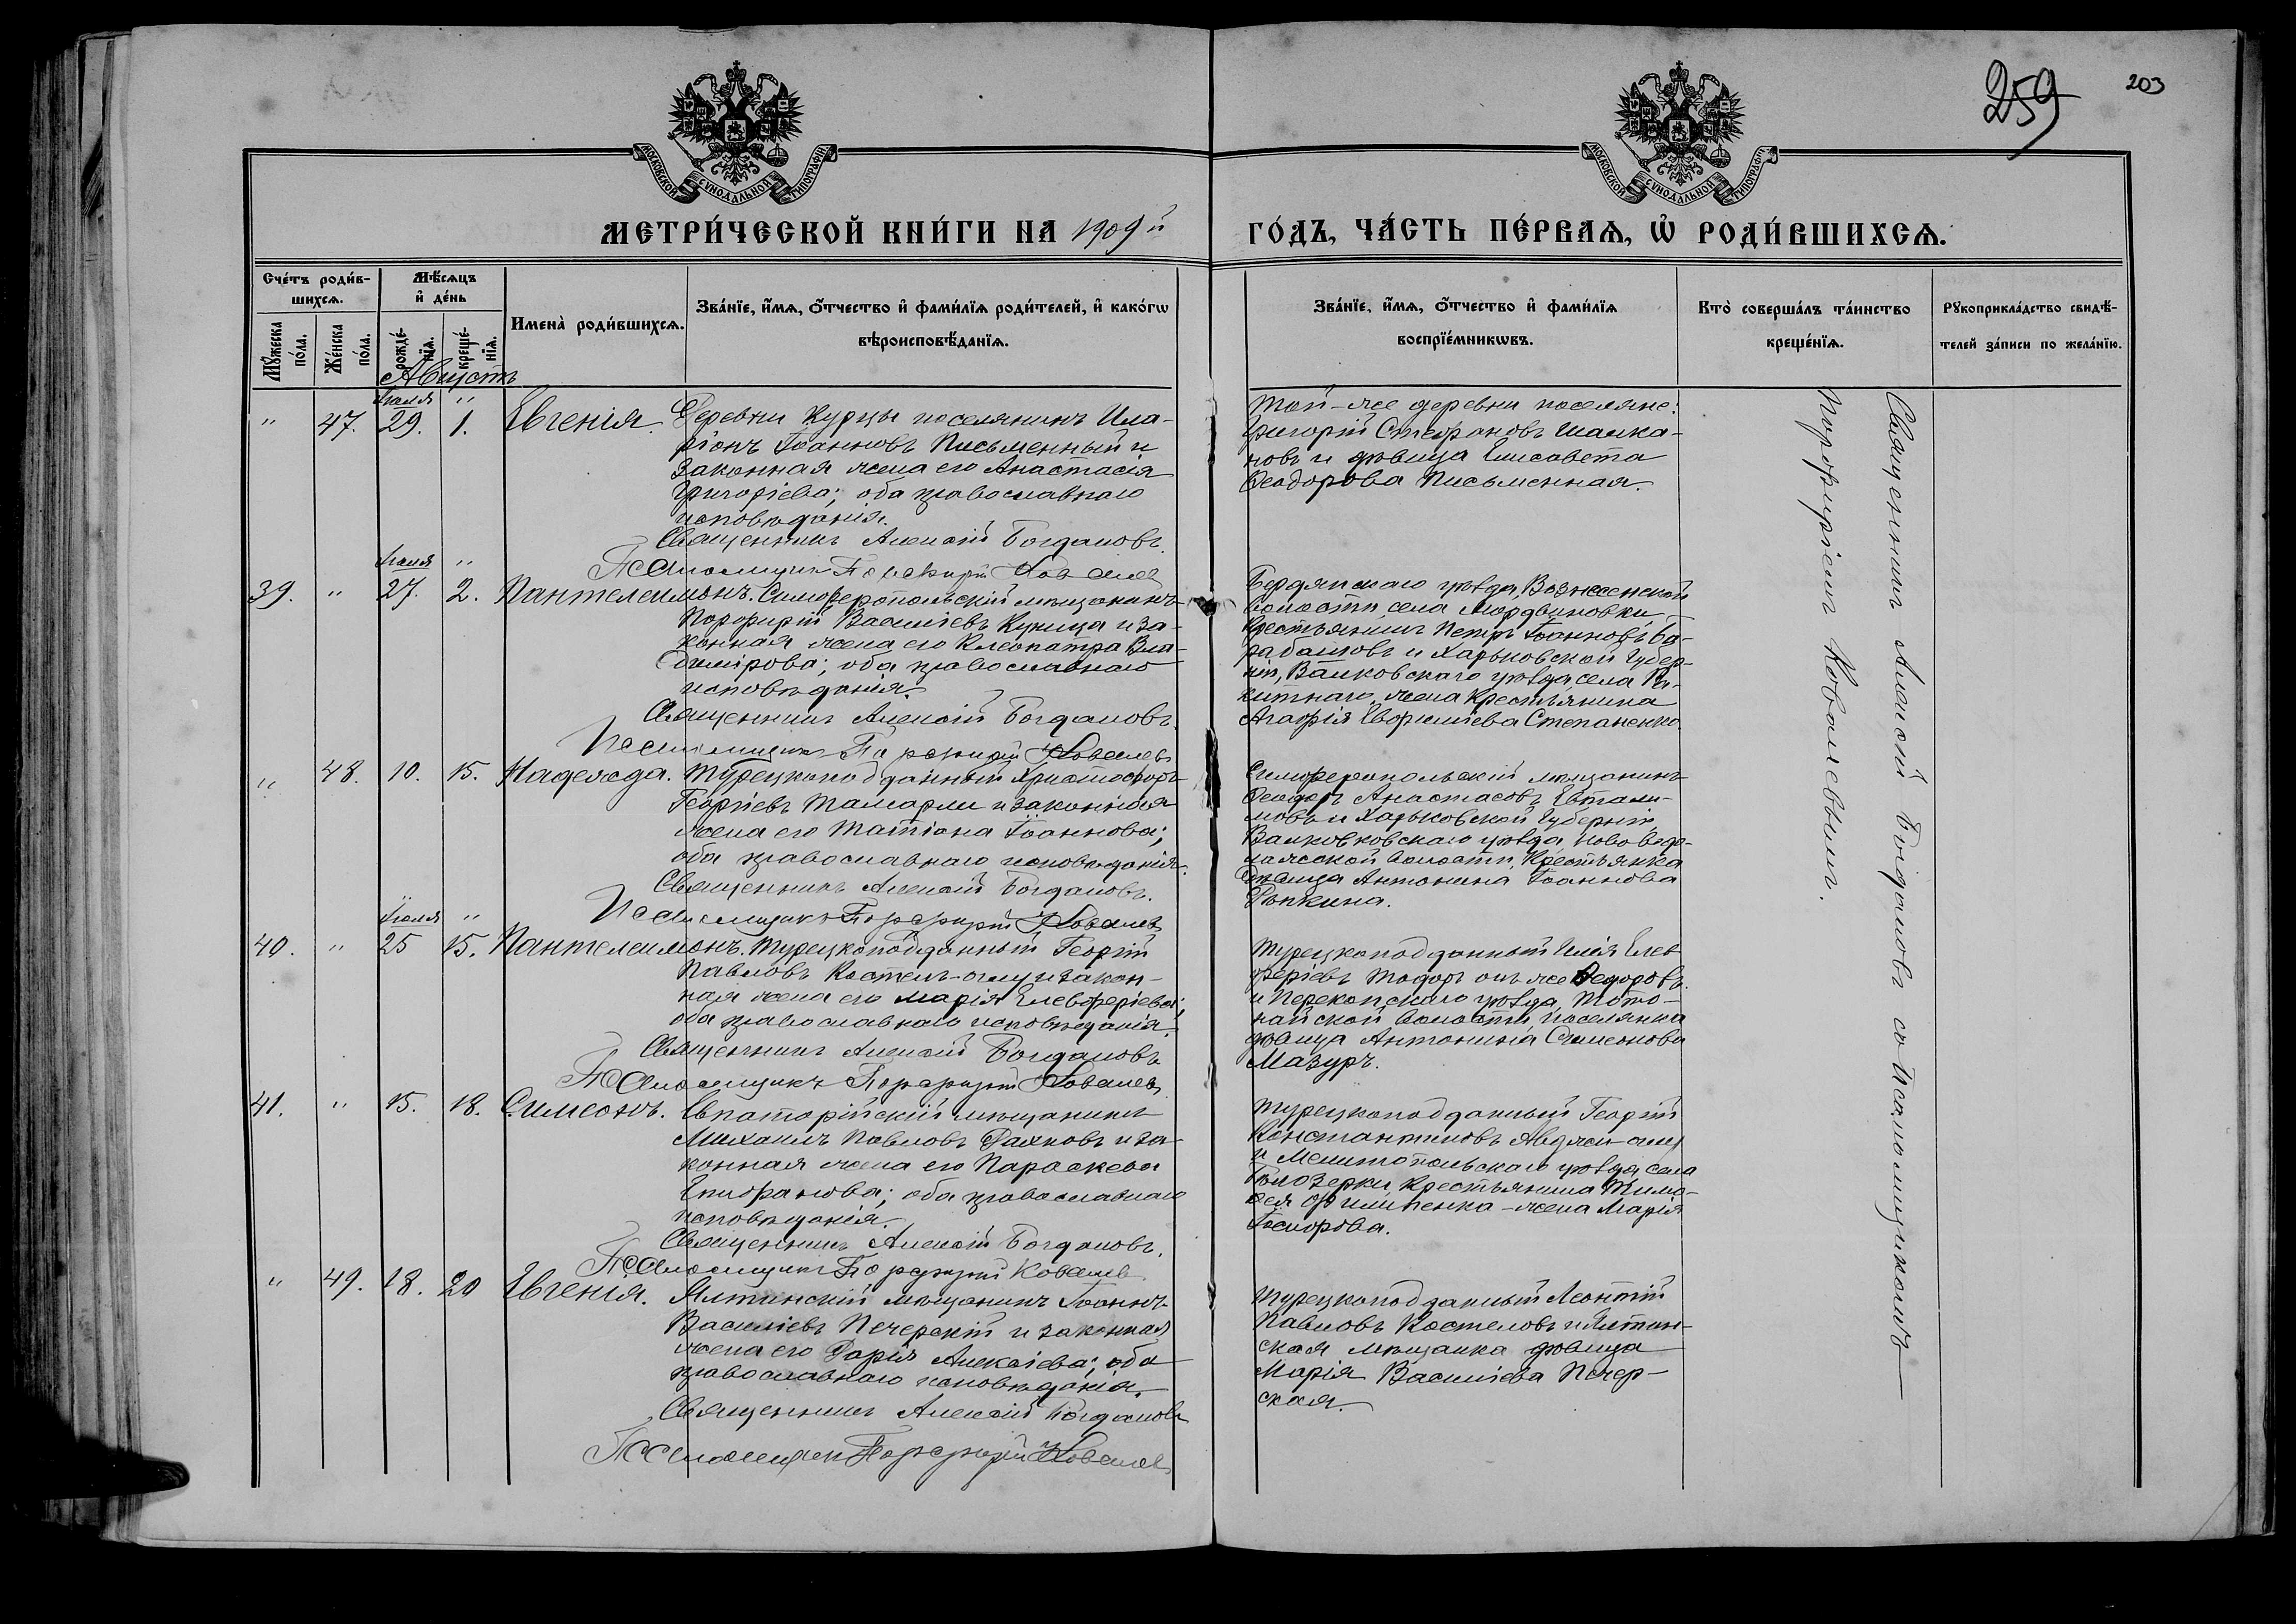 259
203
МОСКОВСКОЙ СУНОДАЛЬНОЙ ТИПОГРАФІИ
МОСКОВСКОЙ СУНОДАЛЬНОЙ ТИПОГРАФІИ
МЕТРИ́ЧЕСКОЙ КНИ́ГИ НА 1909й
ГО́ДЪ, ЧА́СТЬ ПЕ́РВАѦ, Ѡ҆ РОДИ́ВШИХСѦ.
Сче́тъ роди́в-
шихсѧ.
Мꙋ́жеска
по́ла.
Же́нска
по́ла.
Мѣ́сѧцъ
и҆ де́нь
рожде́-
нїѧ.
креще́-
нїѧ.
Имена̀ роди́вшихсѧ.
Зва́нїе, и҆́мѧ, ѻ҆́тчество и҆ фами́лїѧ роди́телей, и҆ како́гѡ
вѣроисповѣ́данїѧ.
Зва́нїе, и҆́мѧ, ѻ҆́тчество и҆ фами́лїѧ
воспрїе́мникѡвъ.
Кто̀ соверша́лъ та́инство
креще́нїѧ.
Рꙋкоприкла́дство свидѣ́-
телей за́писи по жела́нїю.
Августъ
Іюля "
" 47. 29. 1. Евгенія. Деревни Курцы поселянинъ Ила-
ріонъ Іоанновъ Письменный и
законная жена его Анастасія
Григоріева; оба православнаго
исповѣданія.
Священникъ Алексій Богдановъ.
Псаломщикъ Порфирій Ковалевъ
Той-же деревни поселяне:
Григорій Стефановъ Шалка-
новъ и дѣвица Елисавета
Ѳеодорова Письменная.
Іюля "
39. " 27. 2. Пантелеимонъ. Симферопольскій мѣщанинъ
Порфирій Васильевъ Куница и за-
конная жена его Клеопатра Вла-
димірова; оба православнаго
исповѣданія.
Священникъ Алексій Богдановъ.
Псаломщикъ Порфирій Ковалевъ
Бердянскаго уѣзда, Вознесенской
волости села Мордвиновки,
крестьянинъ Петръ Іоанновъ Ба-
рабашовъ и Харьковской Губер-
ніи, Валковскаго уѣзда, села Ра-
китнаго, жена крестьянина
Агафія Евфиміева Степаненко.
" 48. 10. 15. Надежда. Турецкоподданный Христофоръ
Георгіевъ Тамарли и законная
жена его Татіана Іоаннова;
оба православнаго исповѣданія.
Священникъ Алексій Богдановъ.
Псаломщикъ Порфирій Ковалевъ
Симферопольскій мѣщанинъ
Ѳеодоръ Анастасовъ Евтали-
мовъ и Харьковской Губерніи
Валковковскаго уѣзда, Ново-Водо-
лажской волости, крестьянка
дѣвица Антонина Іоаннова
Рѣпкина.
Іюля "
40. " 25 15. Пантелеимонъ. Турецкоподданный Георгій
Павловъ Костелъ-оглу и закон-
ная жена его Марія Елевферіева;
оба православнаго исповѣданія.
Священникъ Алексій Богдановъ
Псаломщикъ Порфирій Ковалевъ
Турецкоподданный Илія Елев-
феріевъ Тодоръ онъ же Ѳедоровъ.
и Перекопскаго уѣзда, Тото-
найской волости поселянка
дѣвица Антонина Симеонова
Мазуръ.
41. " 15. 18. Симеонъ. Евпаторійскій мѣщанинъ
Михаилъ Павловъ Рахновъ и за-
конная жена его Параскева
Епифанова; оба православнаго
исповѣданія.
Священникъ Алексій Богдановъ.
Псаломщикъ Порфирій Ковалевъ
Турецкоподданный Георгій
Константиновъ Авджи-оглу
и Мелитопольскаго уѣзда села
Бѣлозерки, крестьянина Тимо-
ѳея Филипенка - жена Марія
Ісидорова.
" 49. 18. 20 Евгенія. Ялтинскій мѣщанинъ Іоаннъ
Василіевъ Печерскій и законная
жена его Дарія Алексіева; оба
православнаго исповѣданія.
Священникъ Алексій Богдановъ
Псаломщикъ Порфирій Ковалевъ
Турецкоподданный Леонтій
Павловъ Костеловъ и Ялтин-
ская мѣщанка дѣвица
Марія Василіева Печер-
ская.
Священникъ Алексій Богдановъ со псаломщикомъ
Порфиріемъ Ковалевымъ.